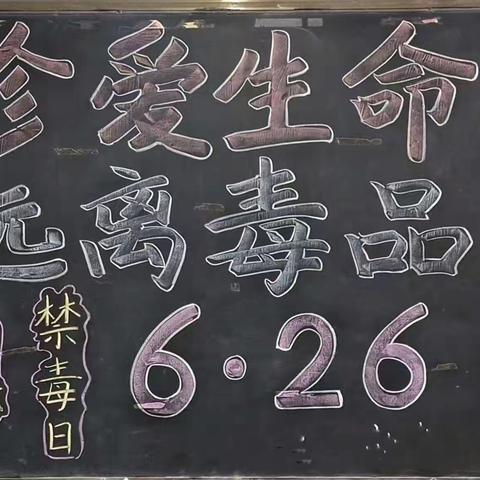 珍爱生命
远离毒品
禁毒日
6·26